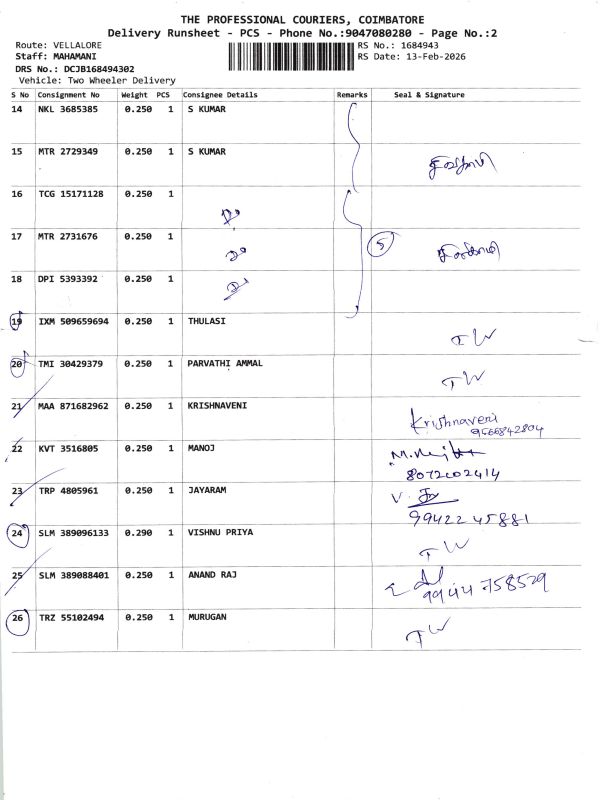 THE PROFESSIONAL COURIERS, COIMBATORE
Delivery Runsheet - PCS - Phone No.:9047080280 - Page No.:2
Route: VELLALORE
RS No.: 1684943
Staff: MAHAMANI
RS Date: 13-Feb-2026
DRS No.: DCJB168494302
Vehicle: Two Wheeler Delivery
S No Consignment No Weight PCS Consignee Details Remarks Seal & Signature
14 NKL 3685385 0.250 1 S KUMAR
15 MTR 2729349 0.250 1 S KUMAR
16 TCG 15171128 0.250 1
17 MTR 2731676 0.250 1 5
18 DPI 5393392 0.250 1
19 IXM 509659694 0.250 1 THULASI IW
20 TMI 30429379 0.250 1 PARVATHI AMMAL IW
21 MAA 871682962 0.250 1 KRISHNAVENI Krishnaveni
9566842804
22 KVT 3516805 0.250 1 MANOJ
8072202414
23 TRP 4805961 0.250 1 JAYARAM V.
99422 45881
24 SLM 389096133 0.290 1 VISHNU PRIYA IW
25 SLM 389088401 0.250 1 ANAND RAJ
9944758529
26 TRZ 55102494 0.250 1 MURUGAN IW